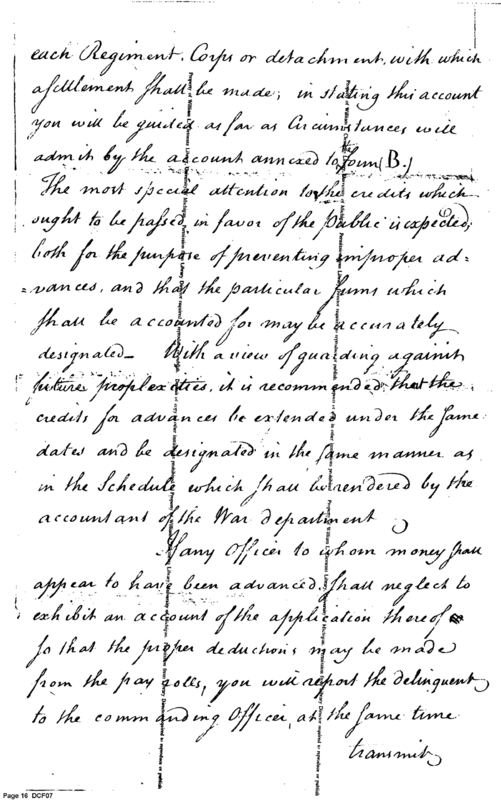 each Regiment, Corps or detachment, with which
a settlement shall be made; in stating this account
you will be guided as far as Circumstances will
admit by the account annexed to the form (B.)
The most special attention to the credits which
ought to be passed in favor of the public is expected,
both for the purpose of preventing improper ad=
=vances, and that the particular sums which
shall be accounted for may be accurately
designated_ With a view of guarding against
future proplexities, it is recommended that the
credits for advances be extended under the same
dates and be designated in the same manner as
in the Schedule which shall be rendered by the
accountant of the War department
If any Officer to whom money shall
appear to have been advanced, shall neglect to
exhibit an account of the application thereof
so that the proper deductions may be made
from the pay rolls, you will report the delinquent
to the commanding Officer, at the same time
transmit
Page 16 DCF07